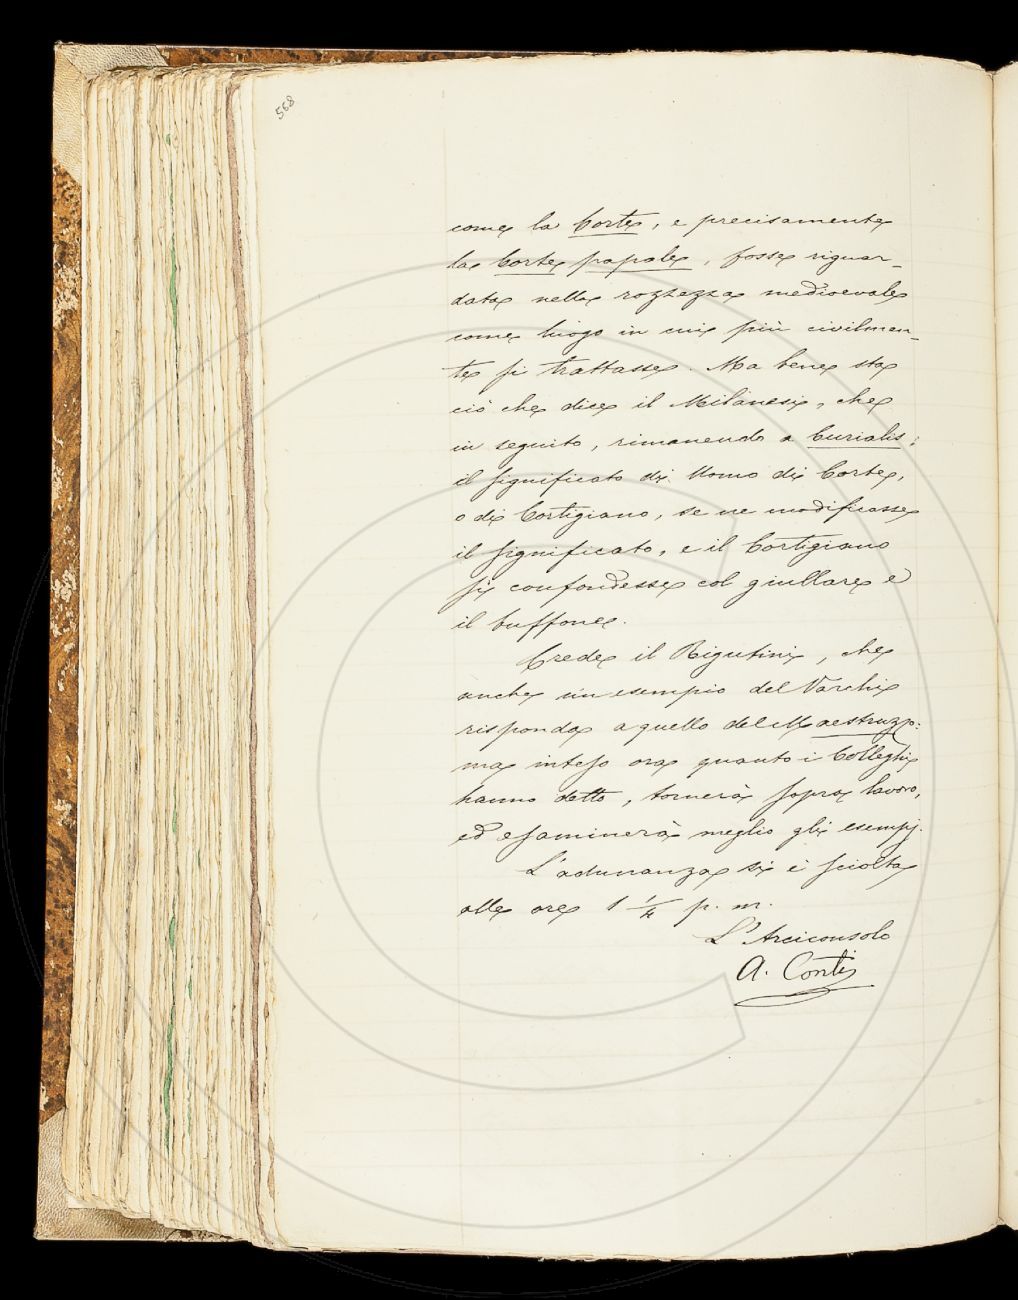 568
come la Corte, e precisamente
la Corte papale, fosse riguar-
data nella rozzezza medioevale
come luogo in cui più civilmen-
te si trattasse. Ma bene sta
ciò che dice il Milanesi, che
in seguito, rimanendo a Curialis:
il significato di Uomo di Corte,
o di Cortigiano, se ne modificasse
il significato, e il Cortigiano
si confondesse col giullare e
il buffone.
Crede il Rigutini, che
anche un esempio del Varchi
risponda a quello del Maestruzzo:
ma inteso ora quanto i Colleghi
hanno detto, tornerà sopra lavoro,
ed esaminerà meglio gli esempj.
L'adunanza si è sciolta
alle ore 1 1/4 p. m.
L'Arciconsolo
A. Conti